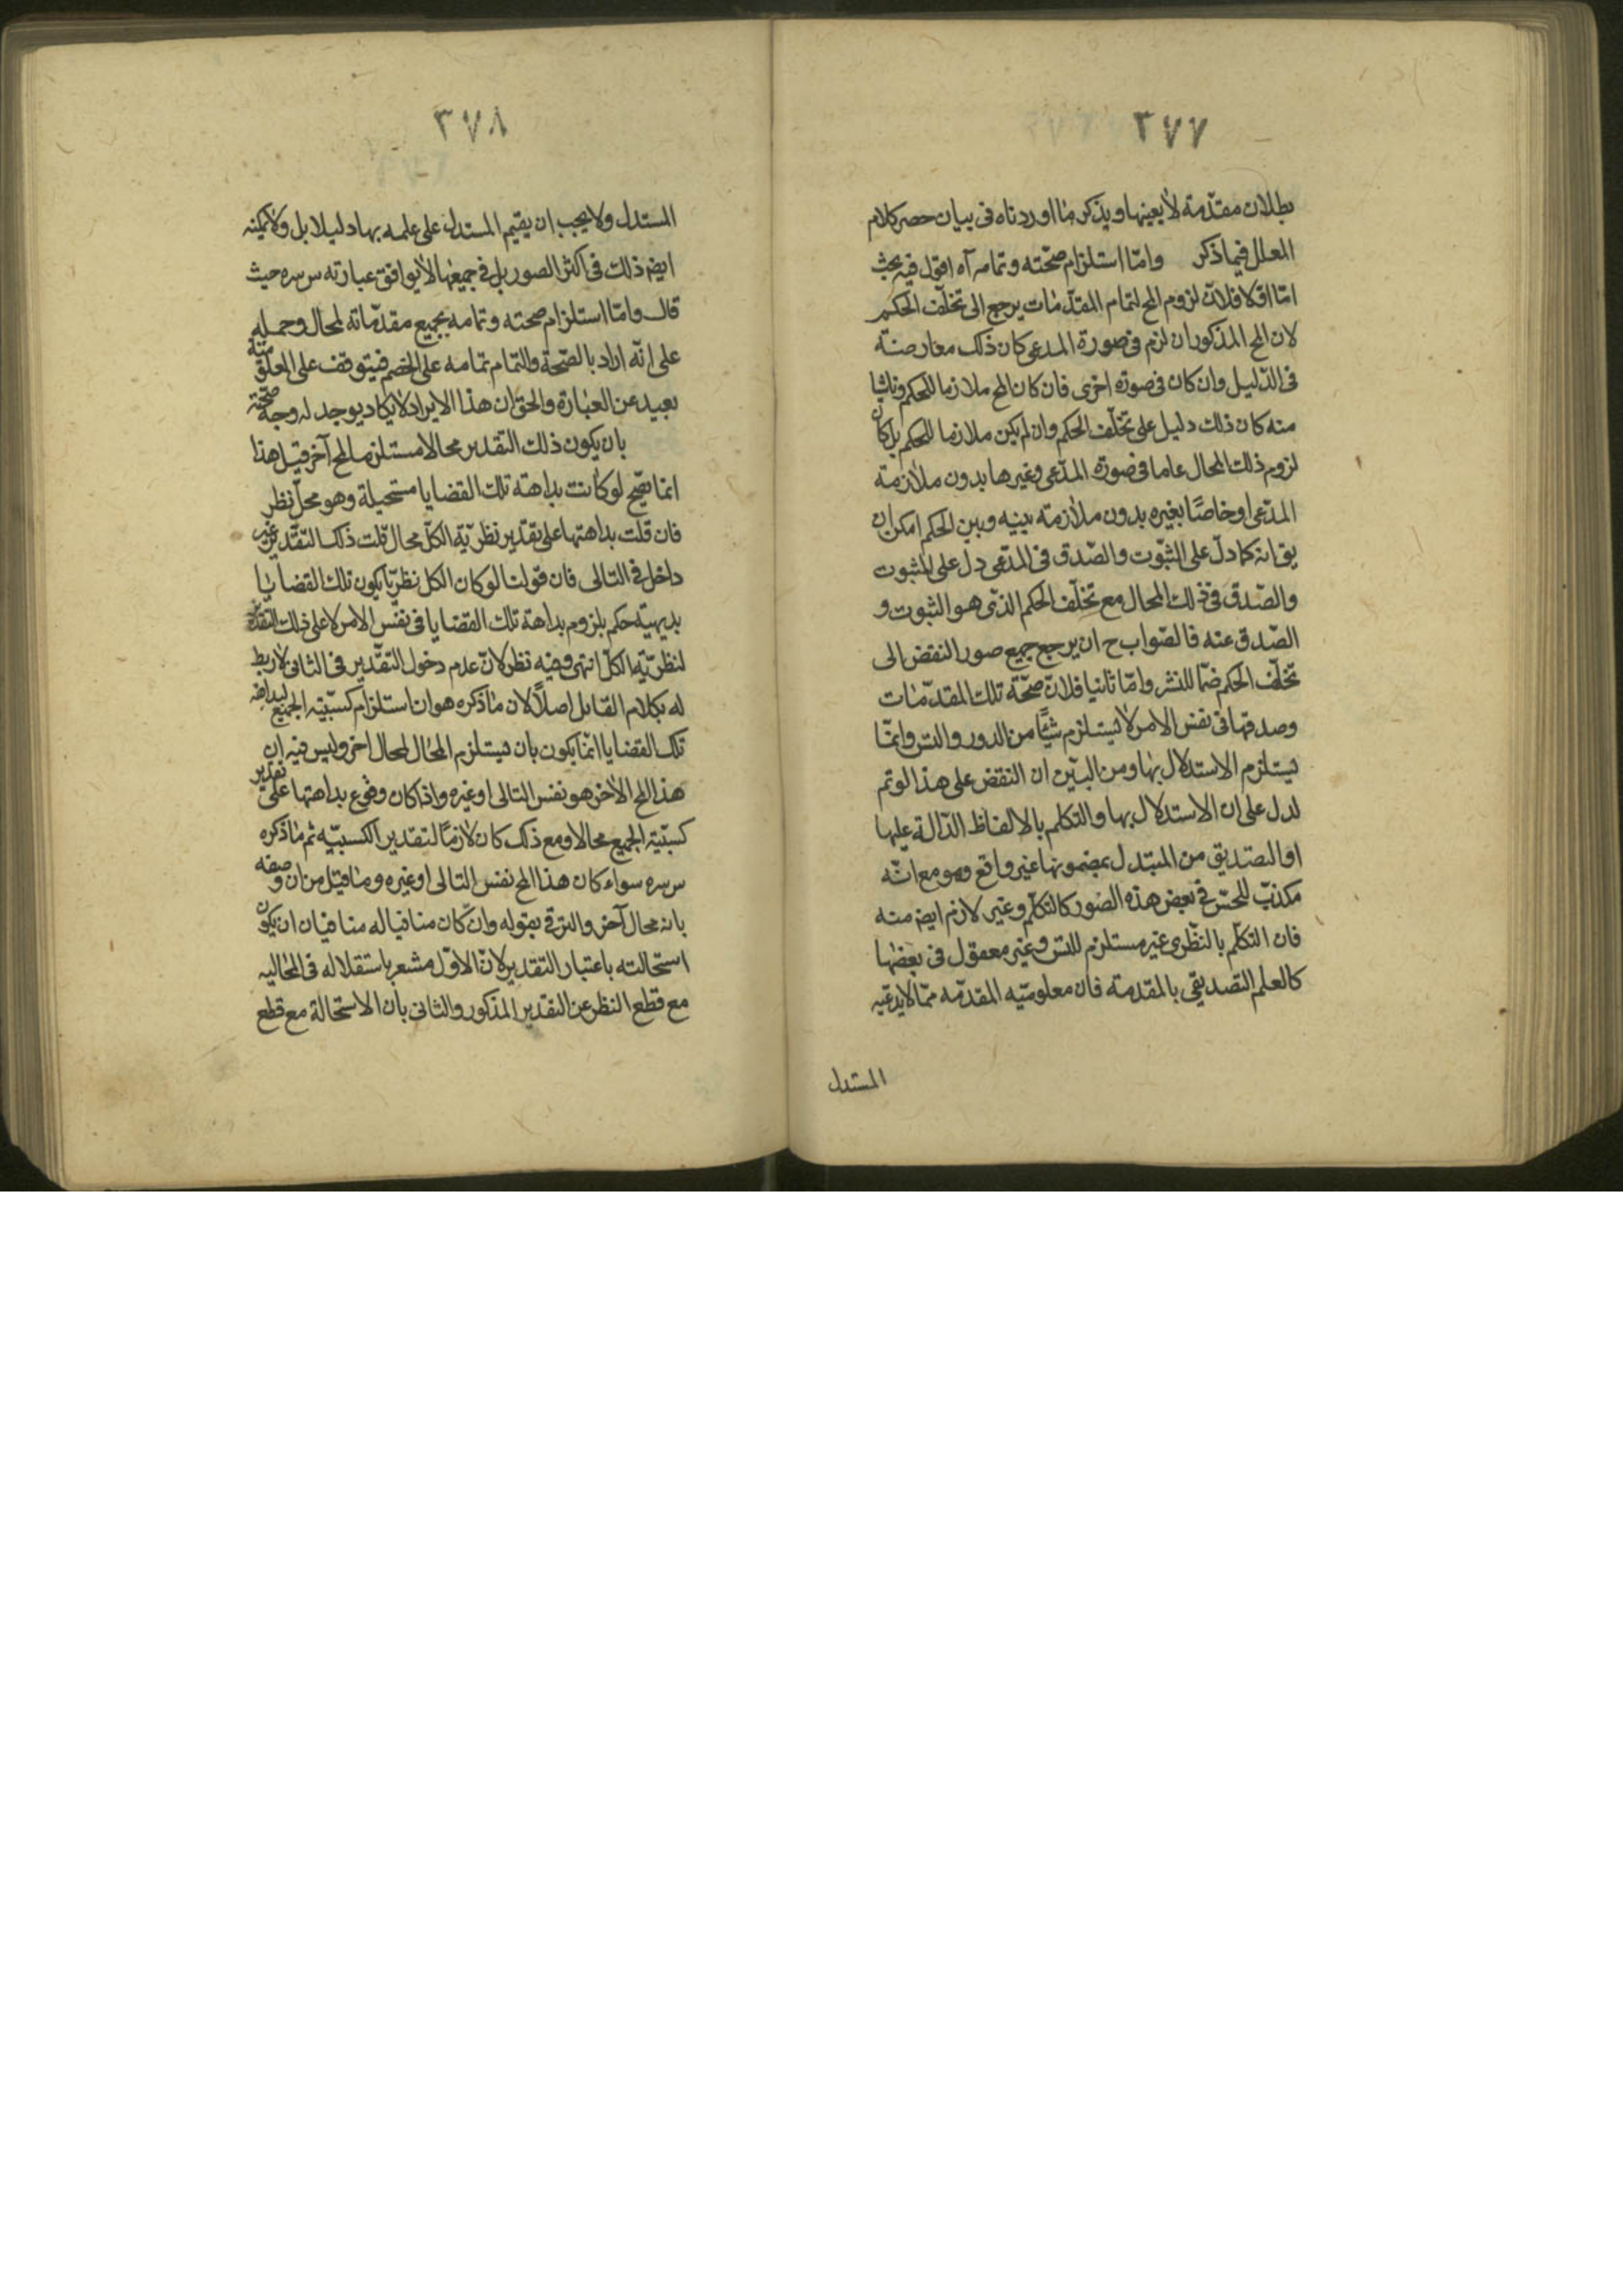 ٣٧٧
بطلان مقدّمة لا بعينها ويذكر ما اوردناه فى بيان حصر كلام
المعلل فيما ذكر وامّا استلزام صحّته وتمامه آه اقول فيه بحث
امّا اوّلا فلانّ لزوم المح لتمام المقدّمات يرجع الى تخلّف الحكم
لان المح المذكور ان لزم فى صورة المدعى كان ذلك معارضة
فى الدّليل وان كان فى صورة اخرى فان كان المح ملازما للحكم وناشيا
منه كان ذلك دليل على تخلّف الحكم وان لم يكن ملازما للحكم بل كان
لزوم ذلك المحال عاما فى صورة المدّعى وغيرها بدون ملازمة
المدّعى او خاصّا بغيره بدون ملازمة بينه وبين الحكم امكن ان
يق انه كما دلّ على الثبوت والصّدق فى المدّعى دل على الثبوت
والصّدق فى ذلك المحال مع تخلّف الحكم الذى هو الثبوت و
الصّدق عنه فالصّواب ح ان يرجع جميع صور النقض الى
تخلّف الحكم ضمّا للنشر وامّا ثانيا فلانّ صحّة تلك المقدّمات
وصدقها فى نفس الامر لا يستلزم شيئًا من الدور والتس وانّما
يستلزم الاستدلال بها ومن البيّن ان النقض على هذا لو تم
لدل على ان الاستدلال بها والتكلم بالالفاظ الدّالة عليها
او التصديق من المستدل بمضمونها غير واقع وهو مع انّه
مكذّب للحسّ فى بعض هذه الصّور كالتكلّم وغير لازم ايض منه
فان التكلّم بالنظرى غير مستلزم للتس وغير معقول فى بعضها
كالعلم التصديقى بالمقدمة فان معلوميّة المقدّمه ممّا لا يدعّيه
المستدل
٣٧٨
المستدل ولا يجب ان يقيم المستدل على علمه بها دليلا بل ولا يمكنه
ايض ذلك فى اكثر الصور بل فى جميعها لا يوافق عبارته س سره حيث
قال وامّا استلزام صحته وتمامه بجميع مقدّماته لمحال وحمله
على انّه اراد بالصّحة والتمام تمامه على الخصم فيتوقف على المعلوميّة
بعيد عن العبارة والحق ان هذا الايراد لا يكاد يوجد له وجه صحّة
بان يكون ذلك التقدير محالا مستلزما لمح آخر قيل هذا
انما يصّح لو كانت بداهة تلك القضايا مستحيلة وهو محلّ نظر
فان قلت بداهتها على تقدير نظريّة الكلّ محال قلت ذلك التقدير غير
داخل فى التالى فان قولنا لو كان الكل نظريّا يكون تلك القضايا
بديهيّة حكم بلزوم بداهة تلك القضايا فى نفس الامر لا على ذلك التقدير
لنظريّة الكلّ انتهى وفيه نظر لانّ عدم دخول التقدير فى الثانى لا ربط
له بكلام القايل اصلاً لان ما ذكره هو ان استلزام كسبيّة الجميع لبداهة
تلك القضايا انّما يكون بان يستلزم المحال لمحال اخر وليس فيه ان
هذا المح الاخر هو نفس التالى او غيره واذا كان وقوع بداهتها على تقدير
كسبيّة الجميع محالا ومع ذلك كان لازمًا لتقدير الكسبيّه ثم ما ذكره
س سره سواء كان هذا المح نفس التالى او غيره وما قيل من ان وصفه
بانه محال آخر والترقى بقوله وان كان منافيا له منافيان ان يكون
استحالته باعتبار التقدير لانّ الاوّل مشعر باستقلاله فى المحاليه
مع قطع النظر عن التقدير المذكور والثانى بان الاستحالة مع قطع